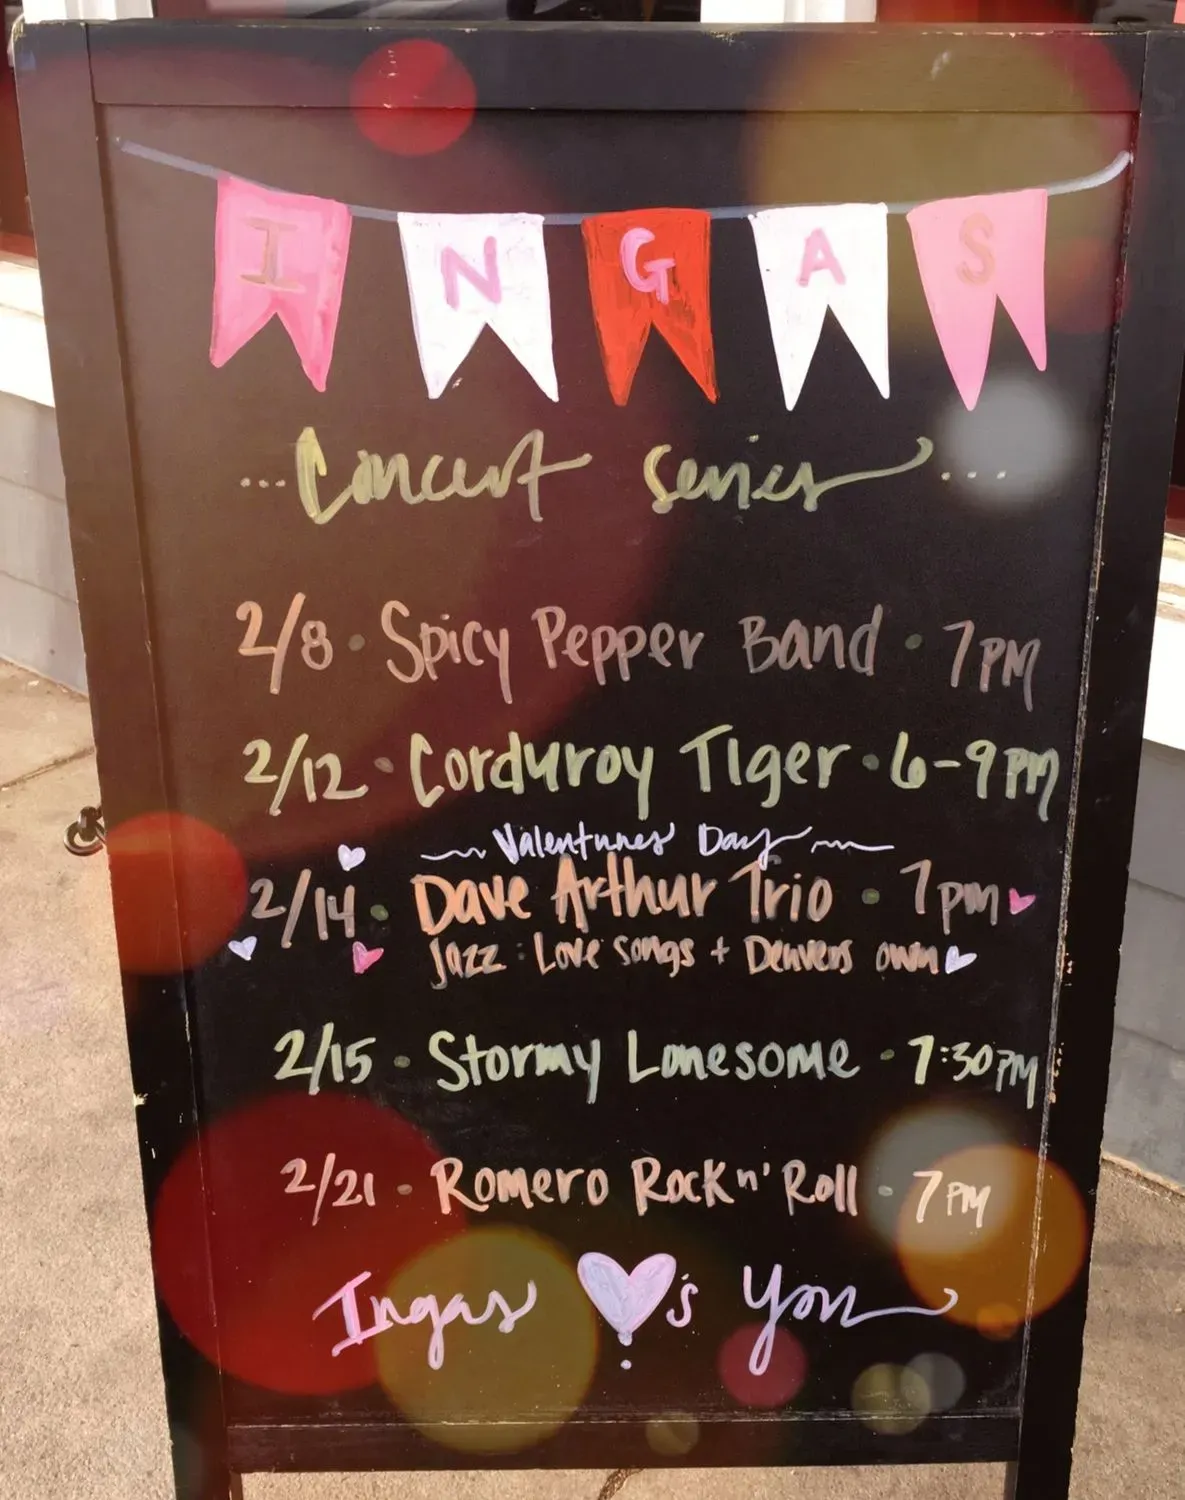 INGAS
...Concert Series...
2/8 • Spicy Pepper Band • 7PM
2/12 • Corduroy Tiger • 6-9PM
Valentines Day
2/14 • Dave Arthur Trio • 7pm
Jazz: Love songs + Denvers own
2/15 • Stormy Lonesome • 7:30PM
2/21 • Romero Rock n' Roll • 7PM
Ingas ♥'s You